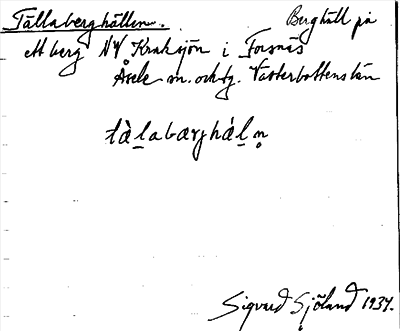 Tållaberghällen. Berghäll på
ett berg NV Kraksjön i Forsnäs
Åsele sn. och tg. Västerbottens län
Sigvard Sjöland 1934.